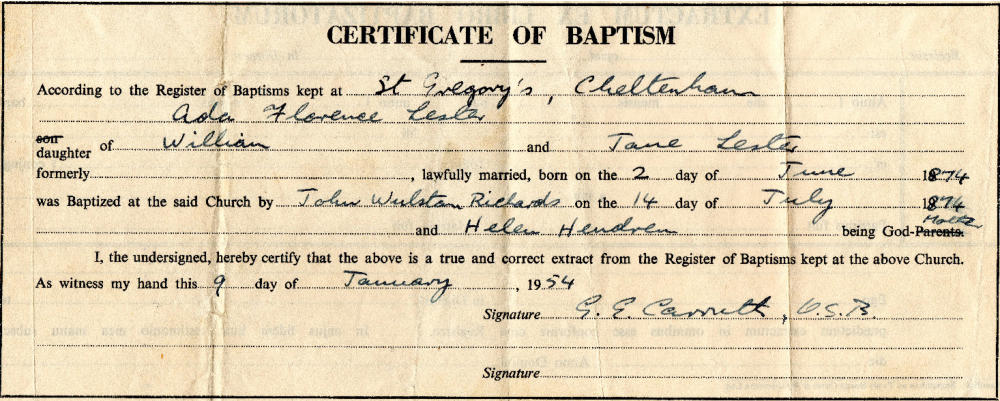 CERTIFICATE OF BAPTISM
According to the Register of Baptisms kept at St Gregory's, Cheltenham
Ada Florence Lester
son
daughter of William and Jane Lester
formerly , lawfully married, born on the 2 day of June 1874
was Baptized at the said Church by John Wulstan Richards on the 14 day of July 1874
and Helen Hendren being God-Parents. Mother
I, the undersigned, hereby certify that the above is a true and correct extract from the Register of Baptisms kept at the above Church.
As witness my hand this 9 day of January, 1954
Signature G. E. Carruth, O.S.B.
Signature